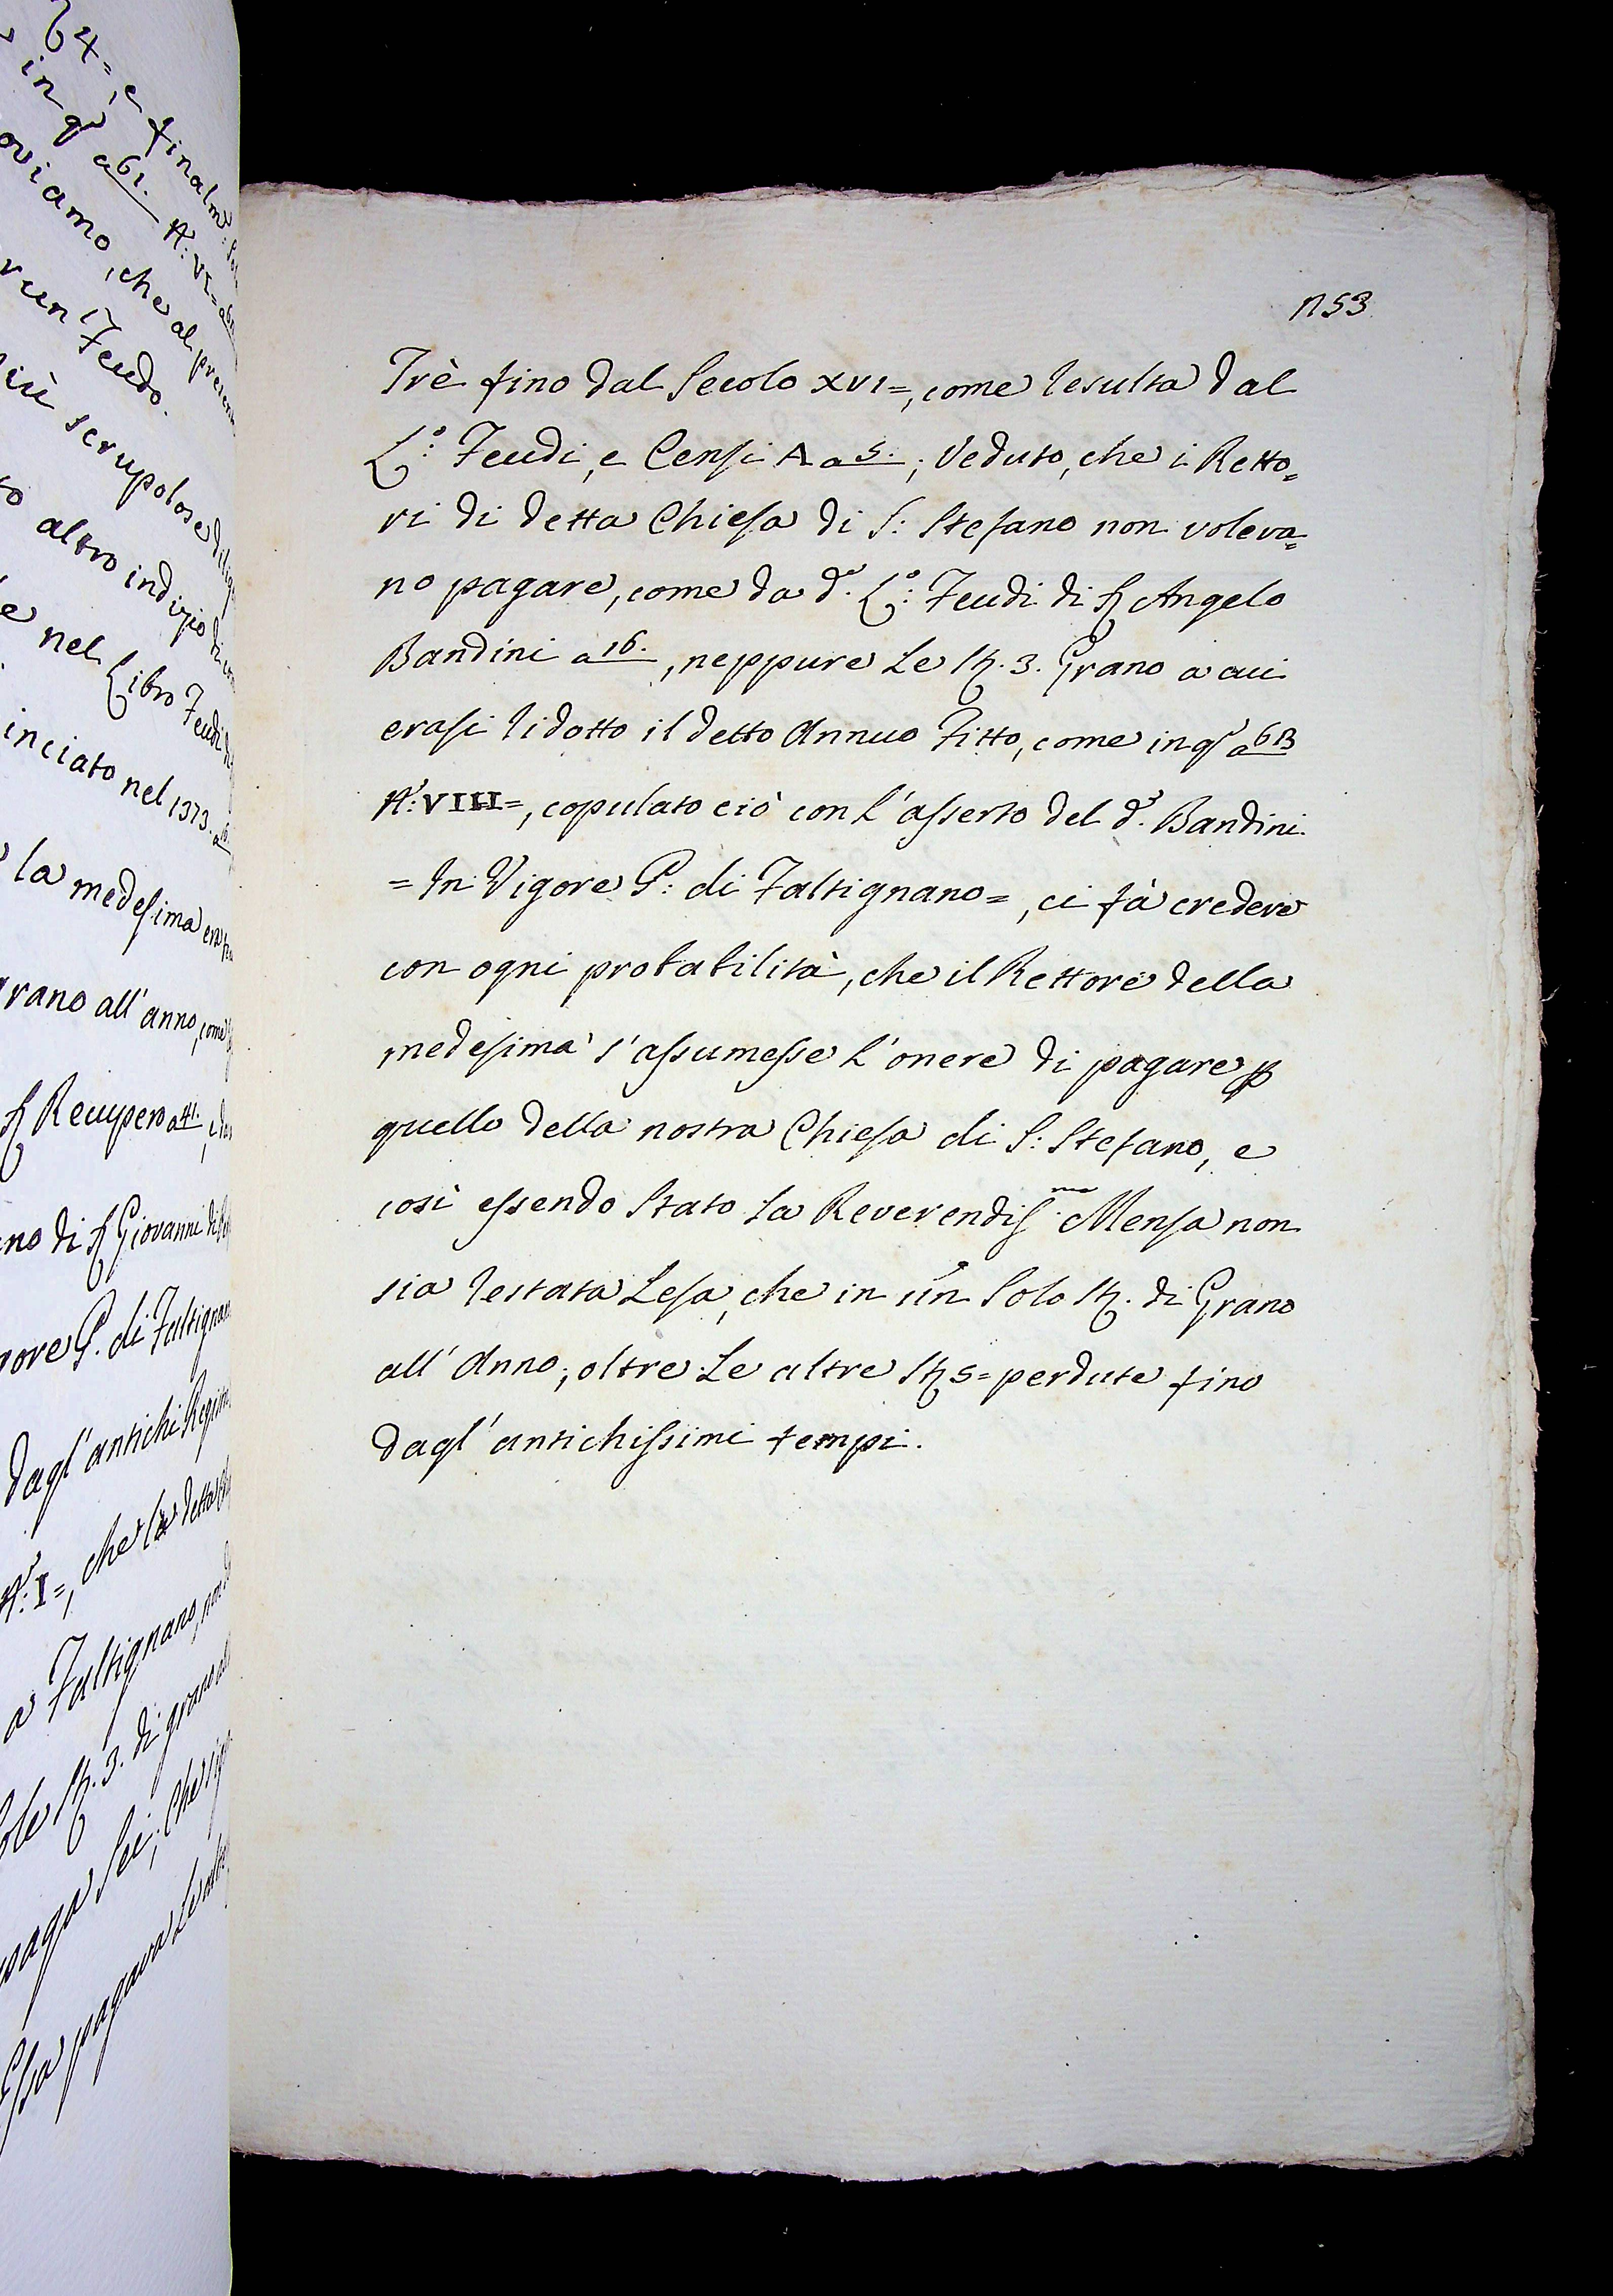 64=, e finalm:
in q a 61. A: VI= a
oviamo, che al presen
run Feudo.
più scrupolose dilig
to altro indizio di
e nel Libro Feudi
inciato nel 1373. a
la medesima era
rano all'anno, come
Recupero a 41.
no di Giovanni di
gore P. di Faltignan
dagl'antichi
A: I=, che la detta
a Faltignano, non
Sole St. 3. di grano
paga Sei; che
Essa pagava Le altre
153
Trè fino dal Secolo XVI=, come resulta dal
L:º Feudi, e Censi A a 5.; Veduto, che i Retto=
ri di detta Chiesa di S: Stefano non voleva=
no pagare, come da d.º L:º Feudi di Angelo
Bandini a 16., neppure Le St. 3. Grano a cui
erasi ridotto il detto Annuo Fitto, come in q a 63
A: VIII=, copulato ciò con l'asserto del d.º Bandini
= In Vigore P: di Faltignano=, ci fà credere
con ogni probabilità, che il Rettore della
medesima s'assumesse l'onere di pagare p
quello della nostra Chiesa di S: Stefano, e
così essendo Stato La Reverendis.ma Mensa non
sia restata Lesa, che in un Solo St. di Grano
all'Anno, oltre Le altre St 5= perdute fino
dagl'antichissimi tempi.